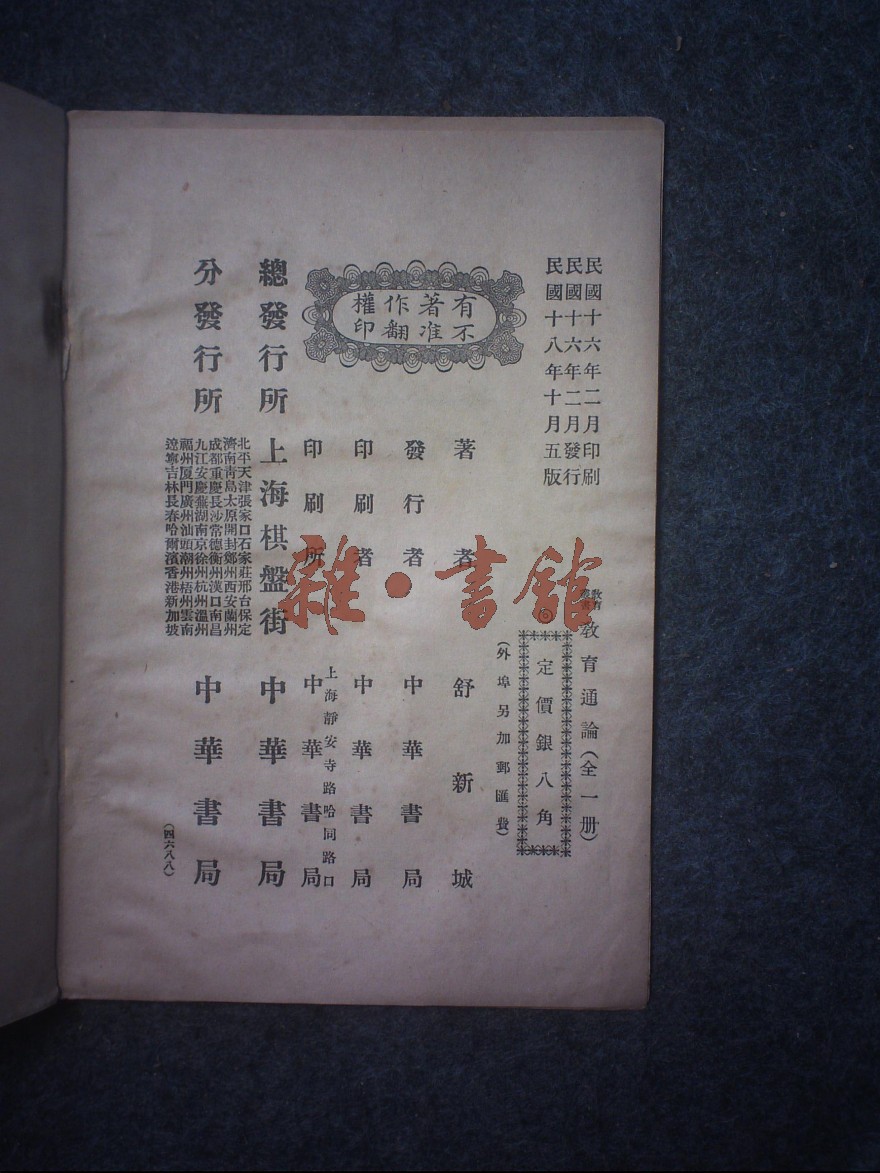 民國十六年二月印刷
民國十六年二月發行
民國十八年十月五版
教育通論(全一册)
定價銀八角
(外埠另加郵匯費)
有著作權
不准翻印
著者 舒新城
發行者 中華書局
印刷者 中華書局
上海靜安寺路哈同路口
印刷所 中華書局
總發行所 上海棋盤街 中華書局
分發行所 中華書局
北平天津張家口石家莊邢台保定
濟南青島太原開封鄭州西安蘭州
成都重慶長沙常德衡州漢口南昌
九江安慶蕪湖南京徐州杭州溫州
福州厦門廣州汕頭潮州梧州雲南
遼寧吉林長春哈爾濱香港新加坡
(四六八八)
雜·書館